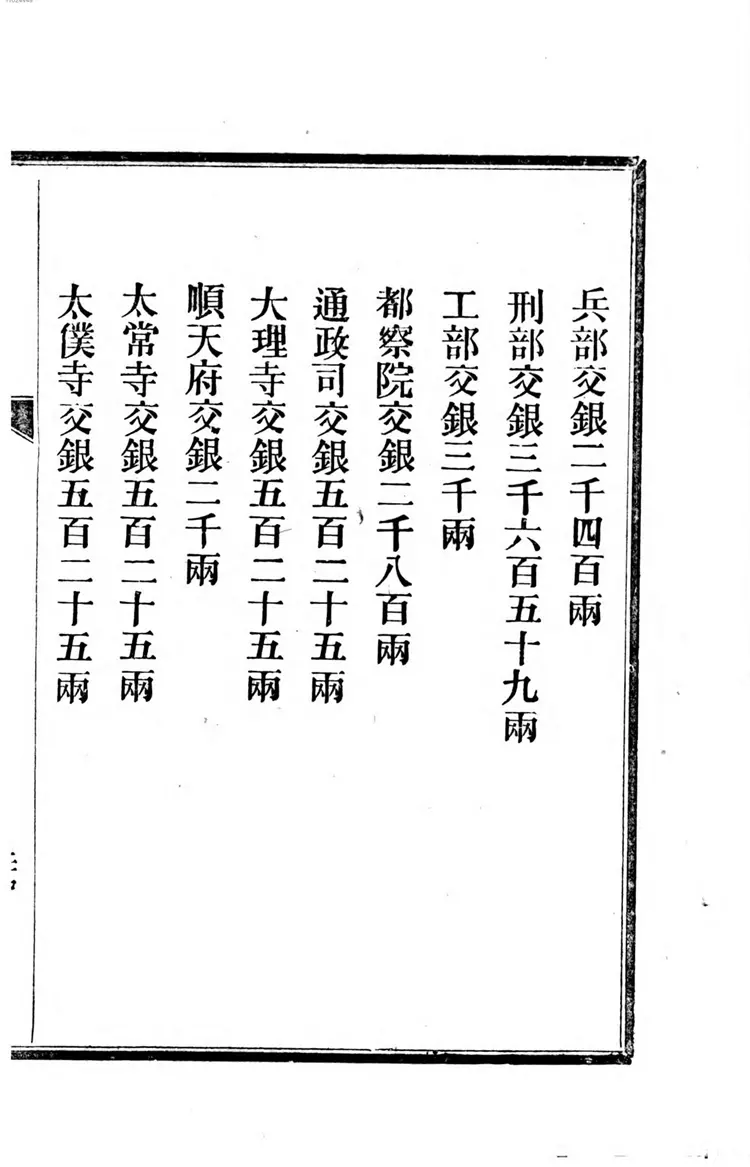 兵部交銀二千四百兩
刑部交銀三千六百五十九兩
工部交銀三千兩
都察院交銀二千八百兩
通政司交銀五百二十五兩
大理寺交銀五百二十五兩
順天府交銀二千兩
太常寺交銀五百二十五兩
太僕寺交銀五百二十五兩